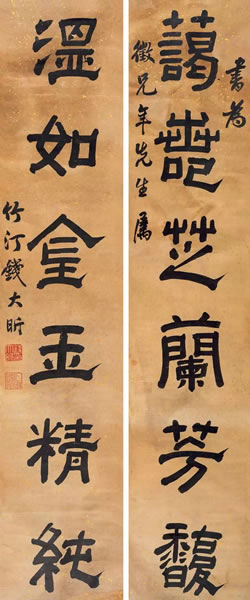 書為
藹芝蘭芳馥
兄年先生屬
溫如金玉精純
竹汀錢大昕